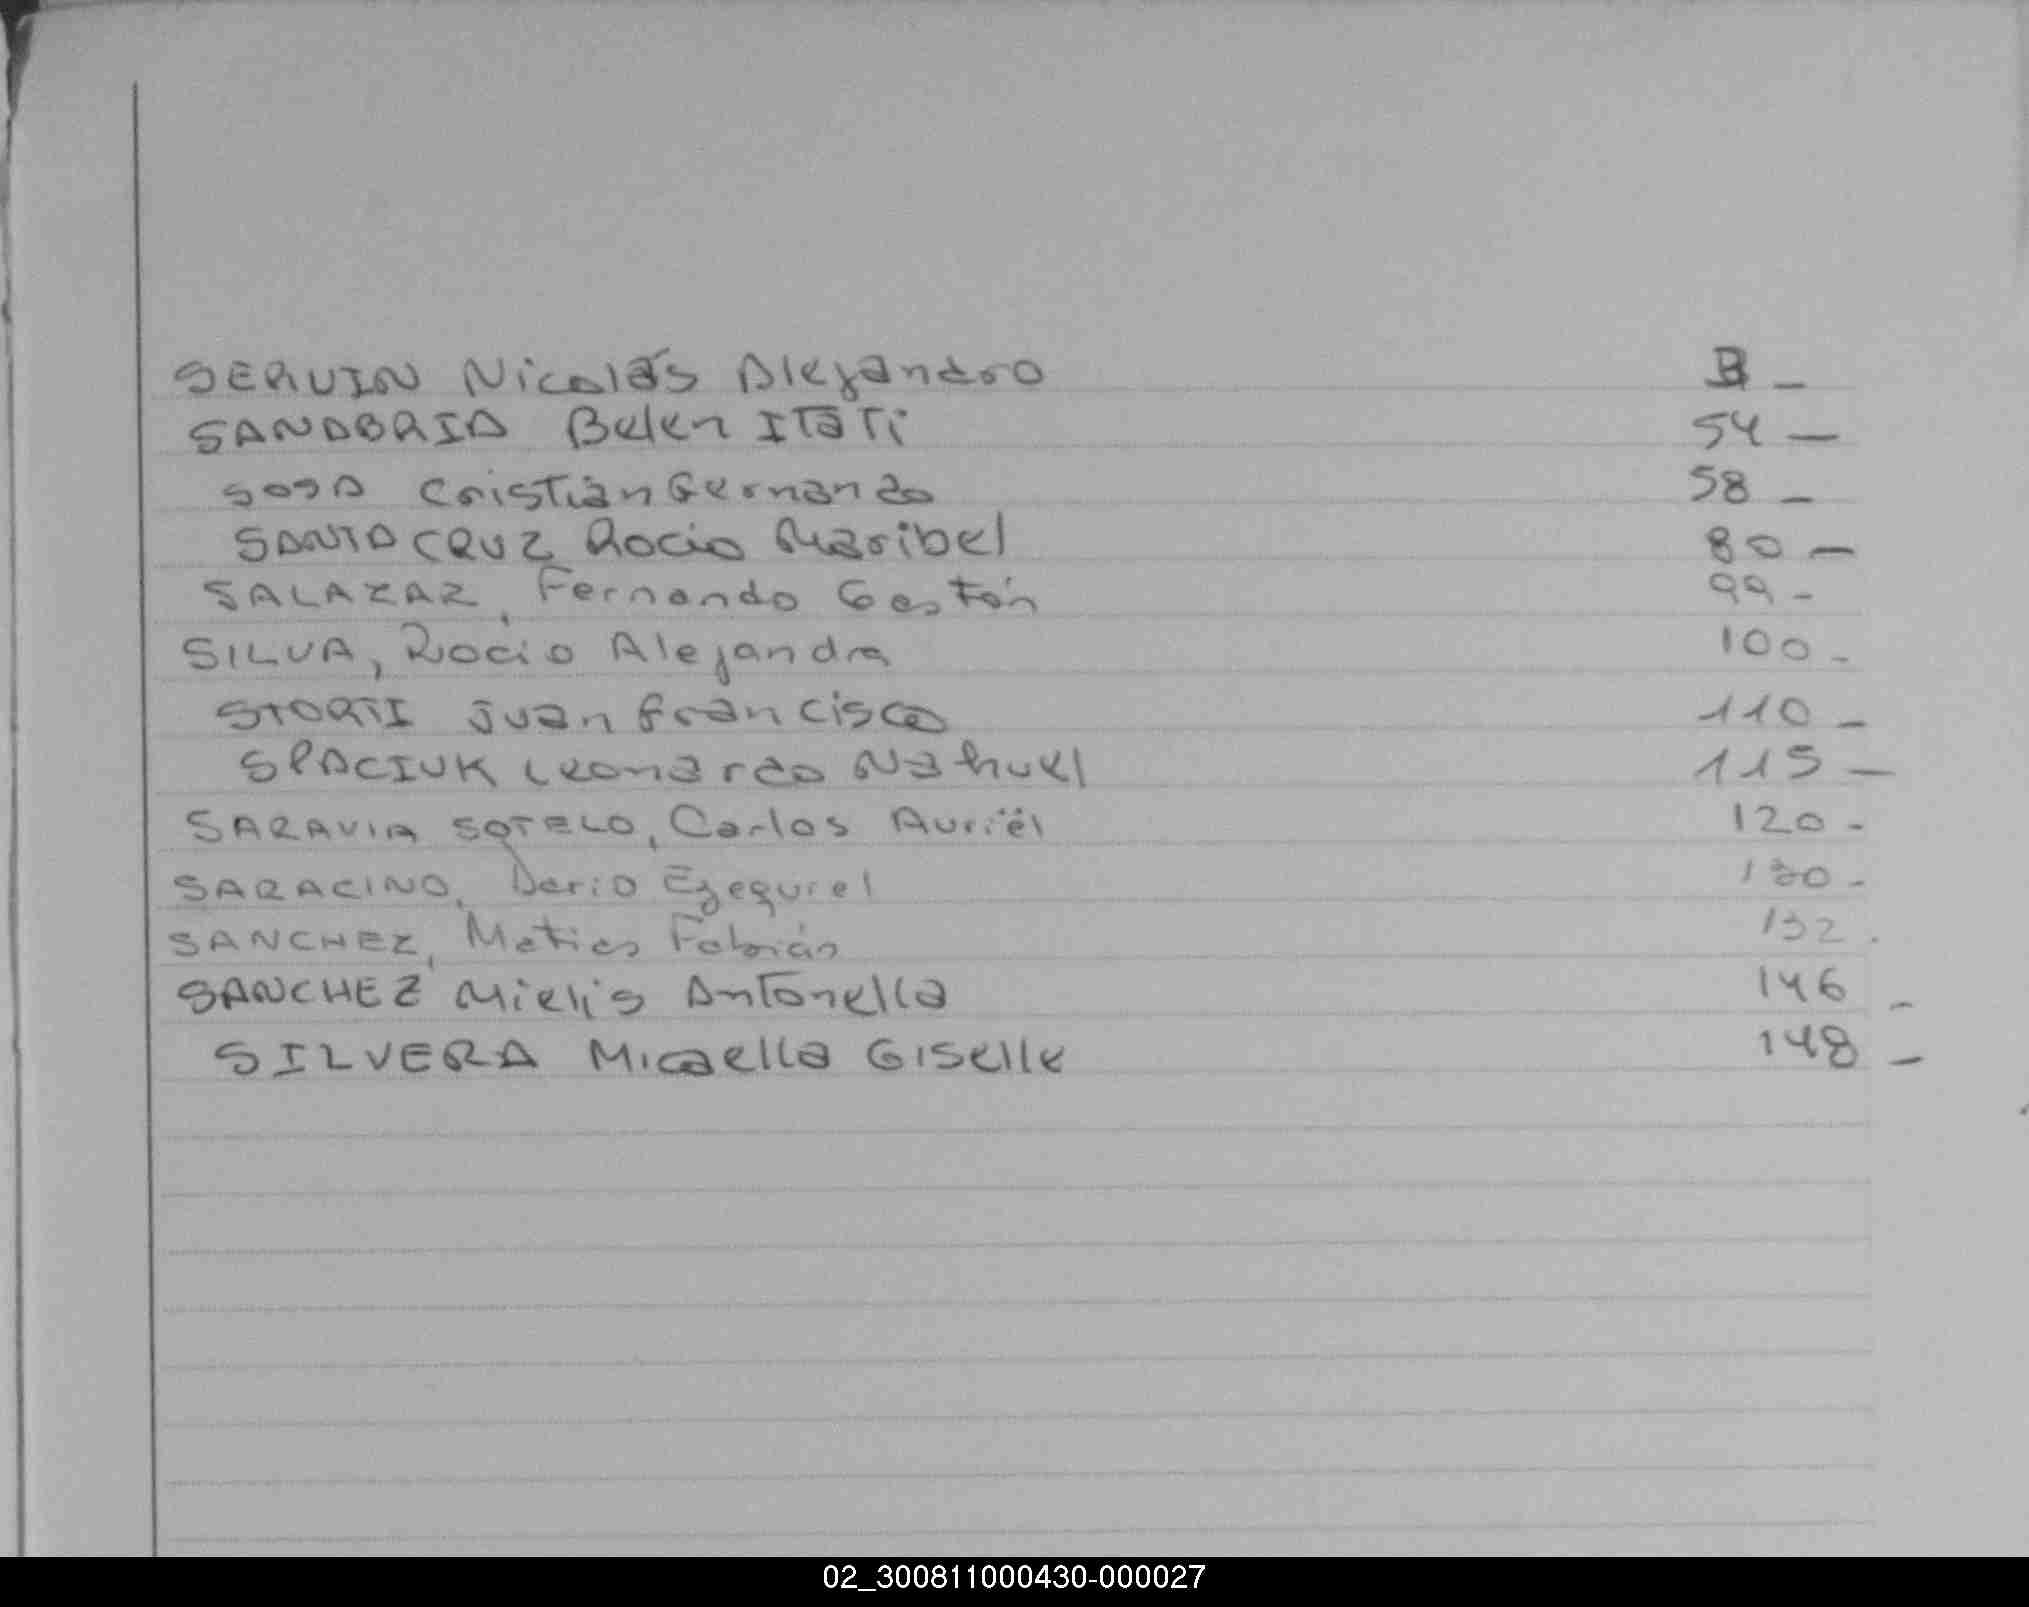 SERVIN Nicolás Alejandro
SANABRIA Belen Itati 54 —
SOSA Cristian Germando 58 —
SANTA CRUZ Rocio Maribel 80 —
SALAZAR, Fernando Gastón 99 -
SILVA, Rocio Alejandra 100 -
STORTI Juan Francisco 110 —
SPACIUK Leonardo Nahuel 115 —
SARAVIA SOTELO, Carlos Auriel 120 -
SARACINO, Dario Ezequiel
SANCHEZ, Matias Fabián 132 .
SANCHEZ Antonella 146 —
SILVERA Micaella Giselle 148 —
02_300811000430-000027